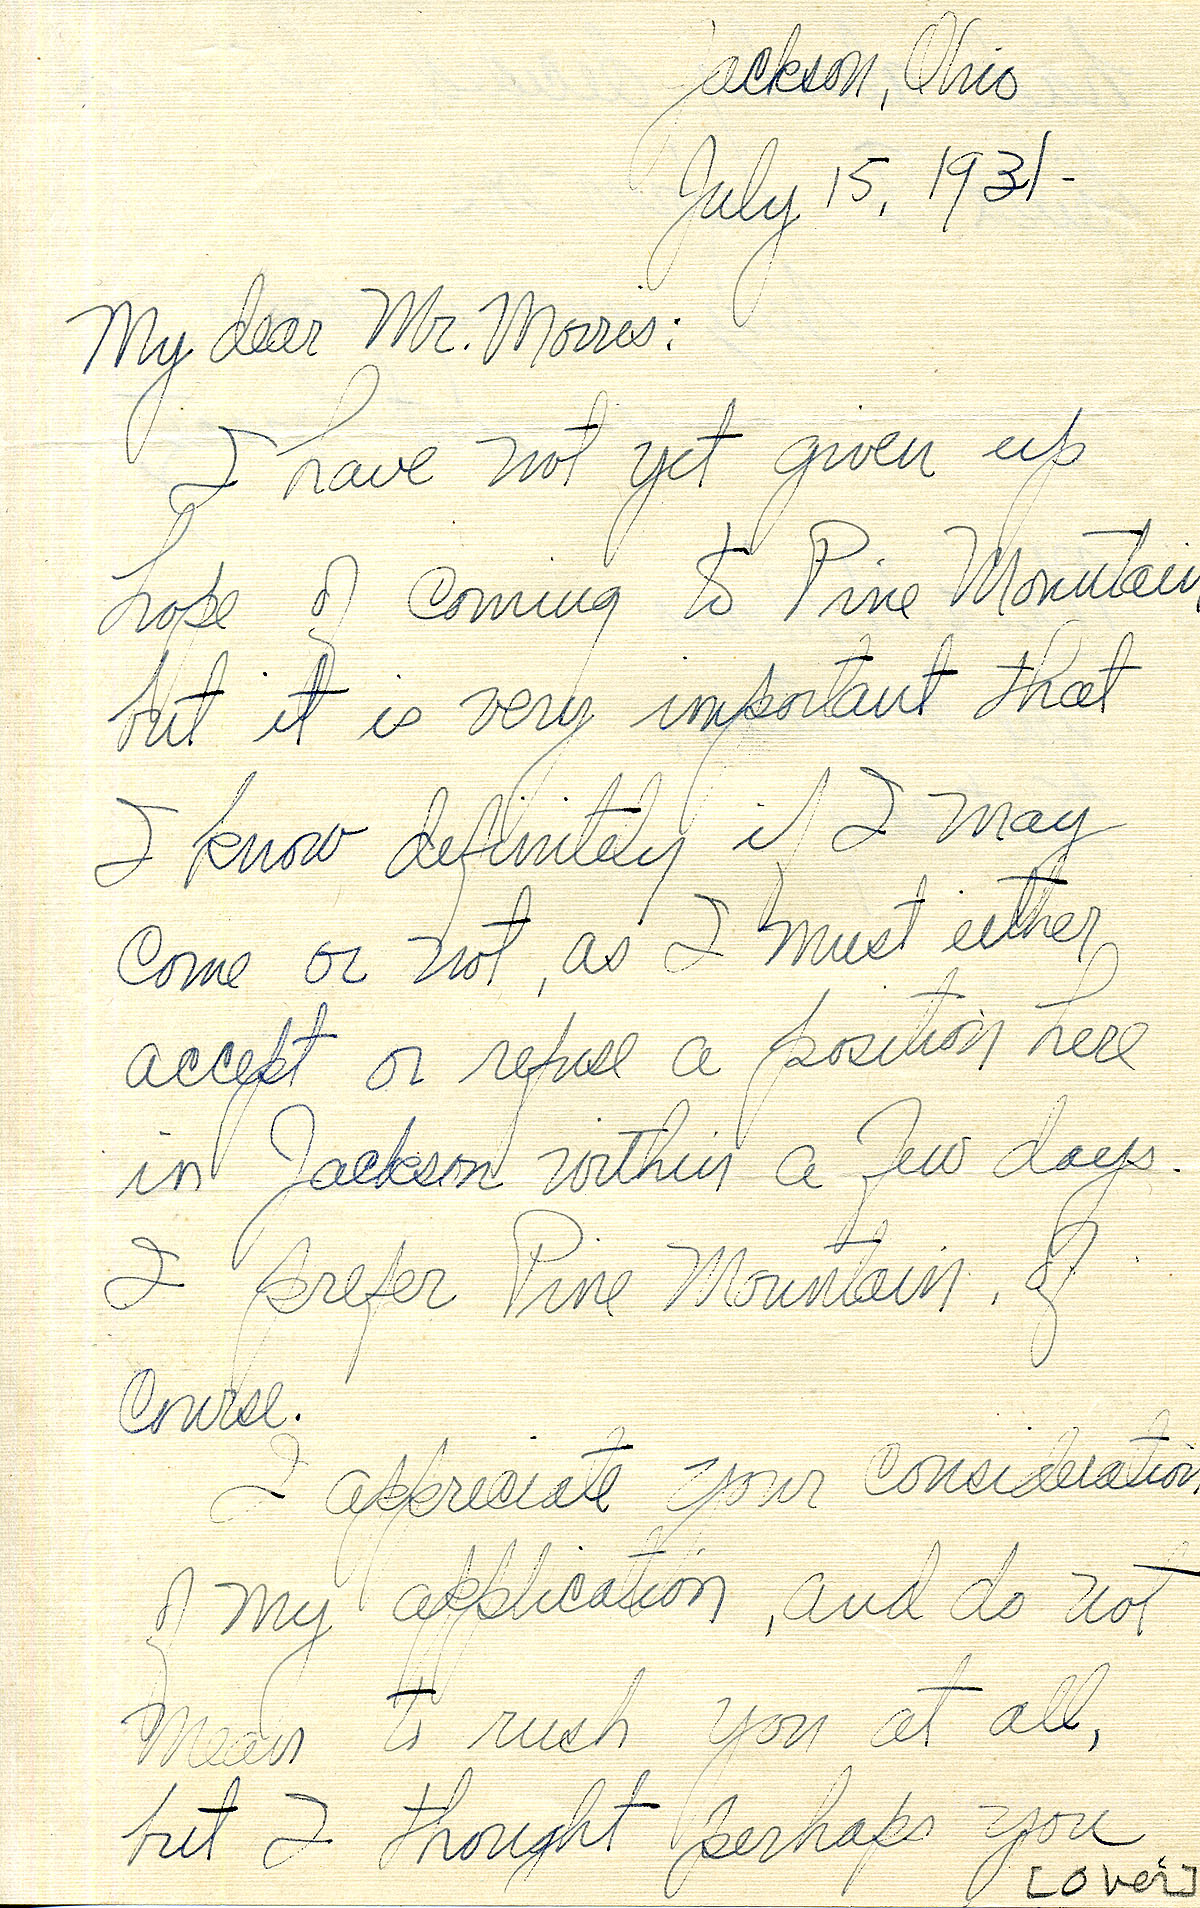 Jackson, Ohio
July 15, 1931-
My dear Mr. Morris:
I have not yet given up
hope of coming to Pine Mountain,
but it is very important that
I know definitely if I may
come or not, as I must either
accept or refuse a position here
in Jackson within a few days.
I prefer Pine Mountain, of
course.
I appreciate your consideration
of my application, and do not
mean to rush you at all,
but I thought perhaps you
[over]